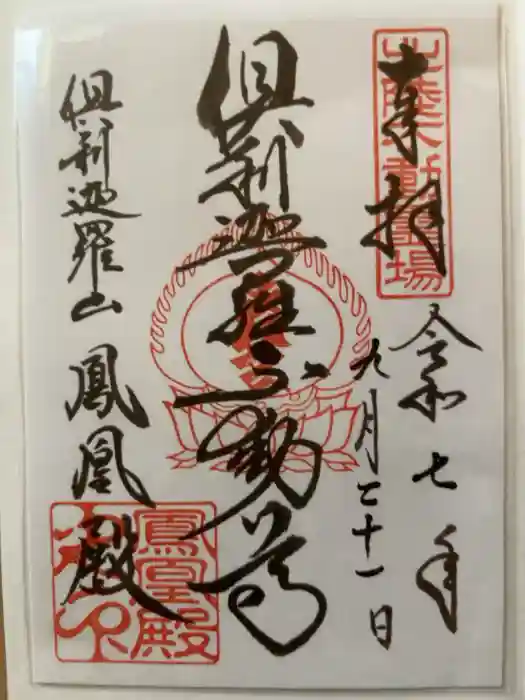 奉拝
北陸不動霊場
令和七年
九月二十一日
倶利迦羅不動尊
倶利迦羅山 鳳凰殿
鳳皇殿